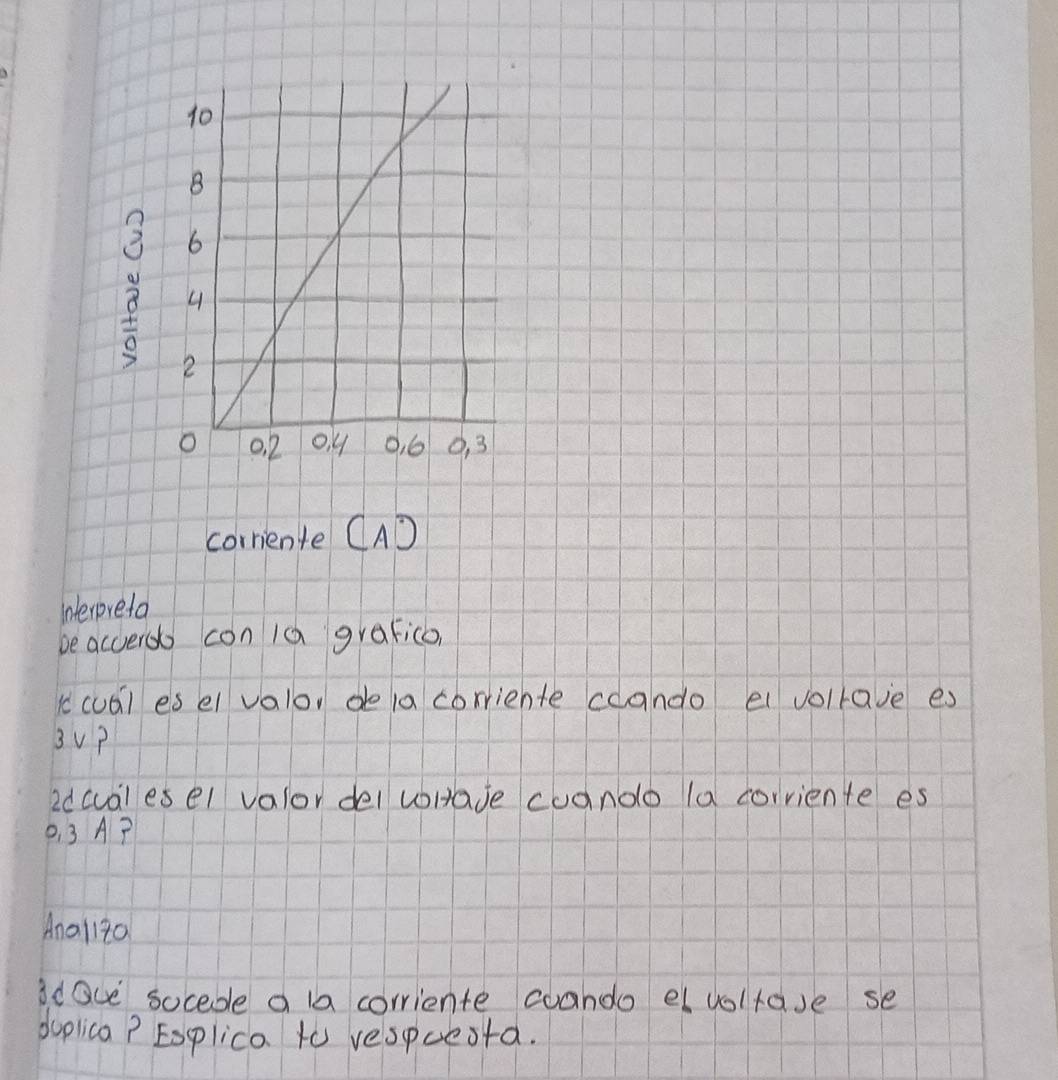 10
8
6
4
2
0 0,2 0,4 0,6 0,3
voltaje (v)
corriente (A)
Interpreta
De acuerdo con la grafica,
1¿ cuál es el valor de la corriente ccando el voltaje es
3 v?
2¿ cuál es el valor del voltaje cuando la corriente es
0,3 A?
Analiza
3¿ Qué sucede a la corriente cuando el voltaje se
duplica? Esplica tu respuesta.